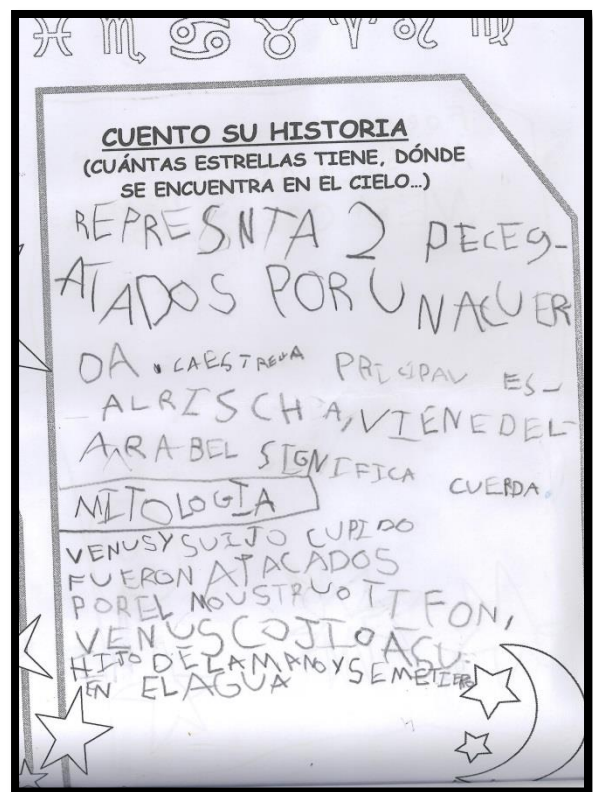 CUENTO SU HISTORIA
(CUÁNTAS ESTRELLAS TIENE, DÓNDE
SE ENCUENTRA EN EL CIELO...)
REPRESNTA 2 PECES
ATADOS POR UNACUER
DA. LAESTRELLA PRICIPAL ES
ALRISCHA, VIENEDEL
ARABEL SIGNIFICA CUERDA.
MITOLOGIA
VENUSYSUIJO CUPIDO
FUERONATACADOS
POREL MOUSTRUO TIFON,
VENUSCOJIOASU
HIJODELAMANOYSEMETIERO
EN ELAGUA